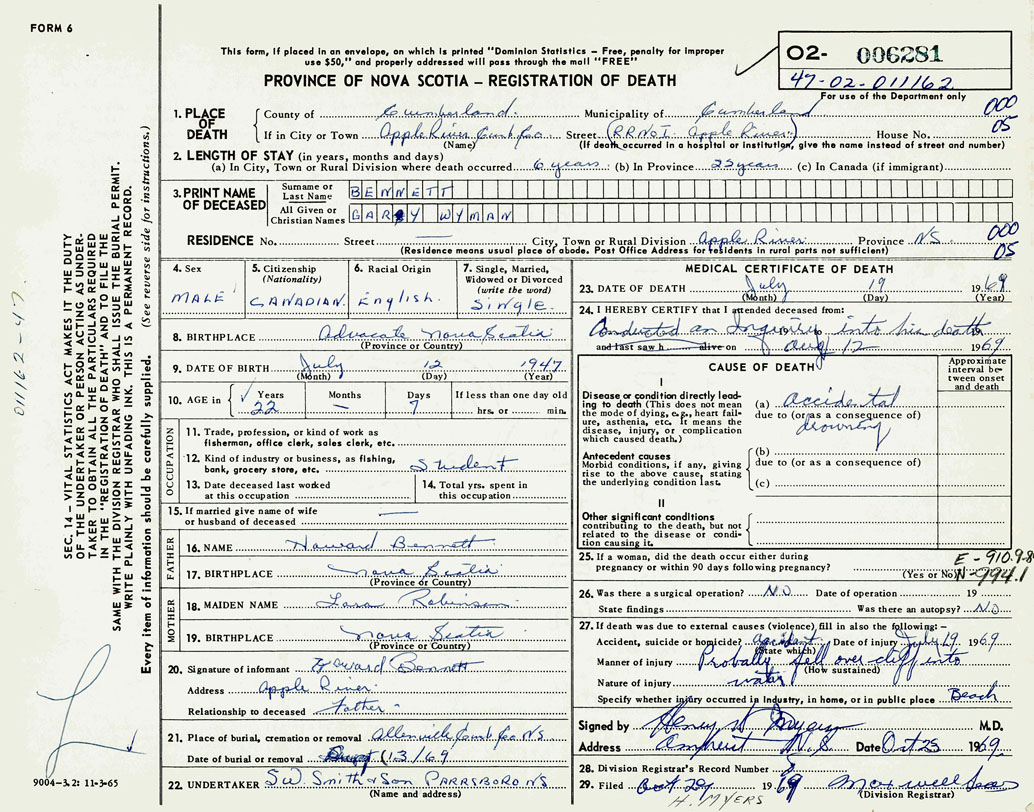 FORM 6
This form, if placed in an envelope, on which is printed "Dominion Statistics – Free, penalty for improper
use $50," and properly addressed will pass through the mail "FREE"
PROVINCE OF NOVA SCOTIA – REGISTRATION OF DEATH
02- 006281
47-02-011162
For use of the Department only
000
05
1. PLACE OF DEATH
County of Cumberland. Municipality of Cumberland
If in City or Town Apple River Cumb. Co. Street (RR No I. Apple River) House No.
(Name) (If death occurred in a hospital or institution, give the name instead of street and number)
2. LENGTH OF STAY (in years, months and days)
(a) In City, Town or Rural Division where death occurred. 6 years (b) In Province 22 years (c) In Canada (if immigrant)
3. PRINT NAME OF DECEASED
Surname or Last Name BENNETT
All Given or Christian Names GARY WYMAN
RESIDENCE No. Street — City, Town or Rural Division Apple River Province NS
(Residence means usual place of abode. Post Office Address for residents in rural parts not sufficient)
000
05
4. Sex
MALE
5. Citizenship
(Nationality)
CANADIAN.
6. Racial Origin
English.
7. Single, Married,
Widowed or Divorced
(write the word)
Single.
8. BIRTHPLACE Advocate Nova Scotia
(Province or Country)
9. DATE OF BIRTH July 12 1947
(Month) (Day) (Year)
10. AGE in Years Months Days If less than one day old
✓ 22 — 7 hrs. or min.
OCCUPATION
11. Trade, profession, or kind of work as
fisherman, office clerk, sales clerk, etc.
12. Kind of industry or business, as fishing,
bank, grocery store, etc. Student
13. Date deceased last worked
at this occupation
14. Total yrs. spent in
this occupation
15. If married give name of wife
or husband of deceased —
FATHER
16. NAME Howard Bennett
17. BIRTHPLACE Nova Scotia
(Province or Country)
MOTHER
18. MAIDEN NAME Robinson
19. BIRTHPLACE Nova Scotia
(Province or Country)
20. Signature of informant Howard Bennett
Address Apple River.
Relationship to deceased Father
21. Place of burial, cremation or removal Cumb. Co. N.S
Date of burial or removal 13/69
22. UNDERTAKER S.W. Smith & Son PARRSBORO N.S
(Name and address)
MEDICAL CERTIFICATE OF DEATH
23. DATE OF DEATH July 19 1969
(Month) (Day) (Year)
24. I HEREBY CERTIFY that I attended deceased from:
Conducted an Inquiry into his death
and last saw h alive on Aug 12 1969
CAUSE OF DEATH
Approximate interval between onset and death
I
Disease or condition directly leading to death (This does not mean the mode of dying, e.g., heart failure, asthenia, etc. It means the disease, injury, or complication which caused death.)
(a) accidental
due to (or as a consequence of)
drowning
Antecedent causes
Morbid conditions, if any, giving rise to the above cause, stating the underlying condition last.
(b)
due to (or as a consequence of)
(c)
II
Other significant conditions
contributing to the death, but not related to the disease or condition causing it.
25. If a woman, did the death occur either during
pregnancy or within 90 days following pregnancy?
(Yes or No)
E-910.9-8
N-994.1
26. Was there a surgical operation? NO Date of operation 19
State findings Was there an autopsy? NO
27. If death was due to external causes (violence) fill in also the following:—
Accident, suicide or homicide? accident Date of injury July 19 1969
(State which)
Manner of injury Probally fell over cliff into
(How sustained)
Nature of injury water
Specify whether injury occurred in industry, in home, or in public place Beach
Signed by Henry Myers M.D.
Address Amherst N.S. Date Oct 23 1969.
28. Division Registrar's Record Number
29. Filed Oct 29 1969 Maxwell
(Division Registrar)
H. MYERS
SEC. 14 – VITAL STATISTICS ACT MAKES IT THE DUTY
OF THE UNDERTAKER OR PERSON ACTING AS UNDER-
TAKER TO OBTAIN ALL THE PARTICULARS REQUIRED
IN THE "REGISTRATION OF DEATH" AND TO FILE THE
SAME WITH THE DIVISION REGISTRAR WHO SHALL ISSUE THE BURIAL PERMIT.
WRITE PLAINLY WITH UNFADING INK. THIS IS A PERMANENT RECORD.
Every item of information should be carefully supplied. (See reverse side for instructions.)
01162-47.
9004-3.2: 11-3-65